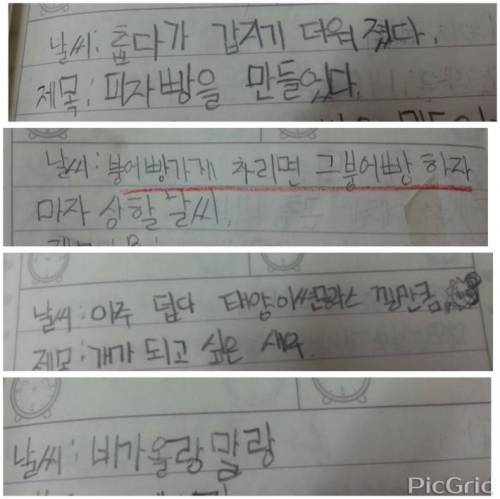 날씨: 춥다가 갑자기 더워 졌다.
제목: 피자빵을 만들었다.
날씨: 붕어빵가게 차리면 그붕어빵 하자
마자 상할 날씨.
날씨: 아주 덥다 태양이썬글라스 낄만큼.
제목: 개가 되고 싶은 새우
날씨: 비가올랑말랑
PicGrid